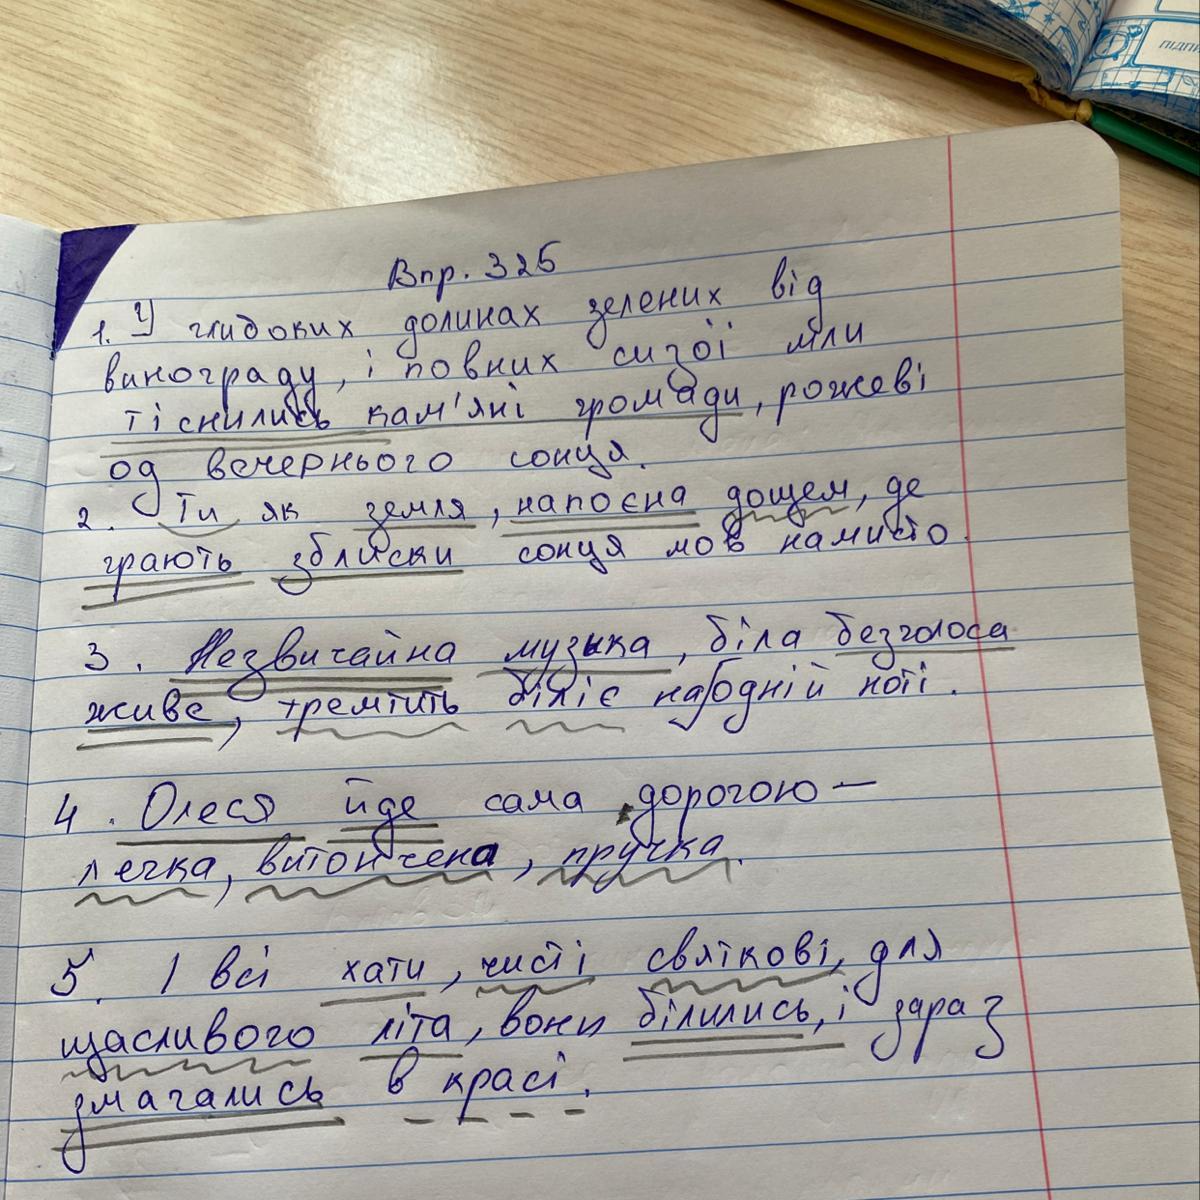 ПІДПИ
Впр. 325
1. У глибоких долинах зелених від
винограду, і повних сизої мли
тіснились кам'яні громади, рожеві
од вечернього сонця.
2. Ти як земля, напоєна дощем, де
грають зблиски сонця мов намисто.
3. Незвичайна музыка, біла безголоса
живе, тремтить біліє на одній ноті.
4. Олеся йде сама дорогою —
легка, витончена, пручка.
5. І всі хати, чисті святкові, для
щасливого літа, вони білились, і зараз
змагались в красі.